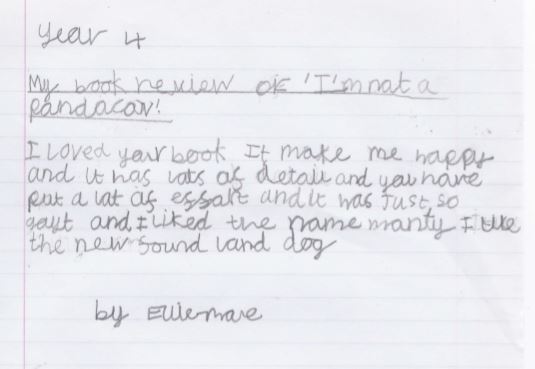 Year 4
My book review of 'I'm not a
pandacorn!
I loved your book It make me happy
and it has lots of detail and you have
put a lot of essart and it was just so
and I liked the name manty I like
the new sound land dog
by Elliemare